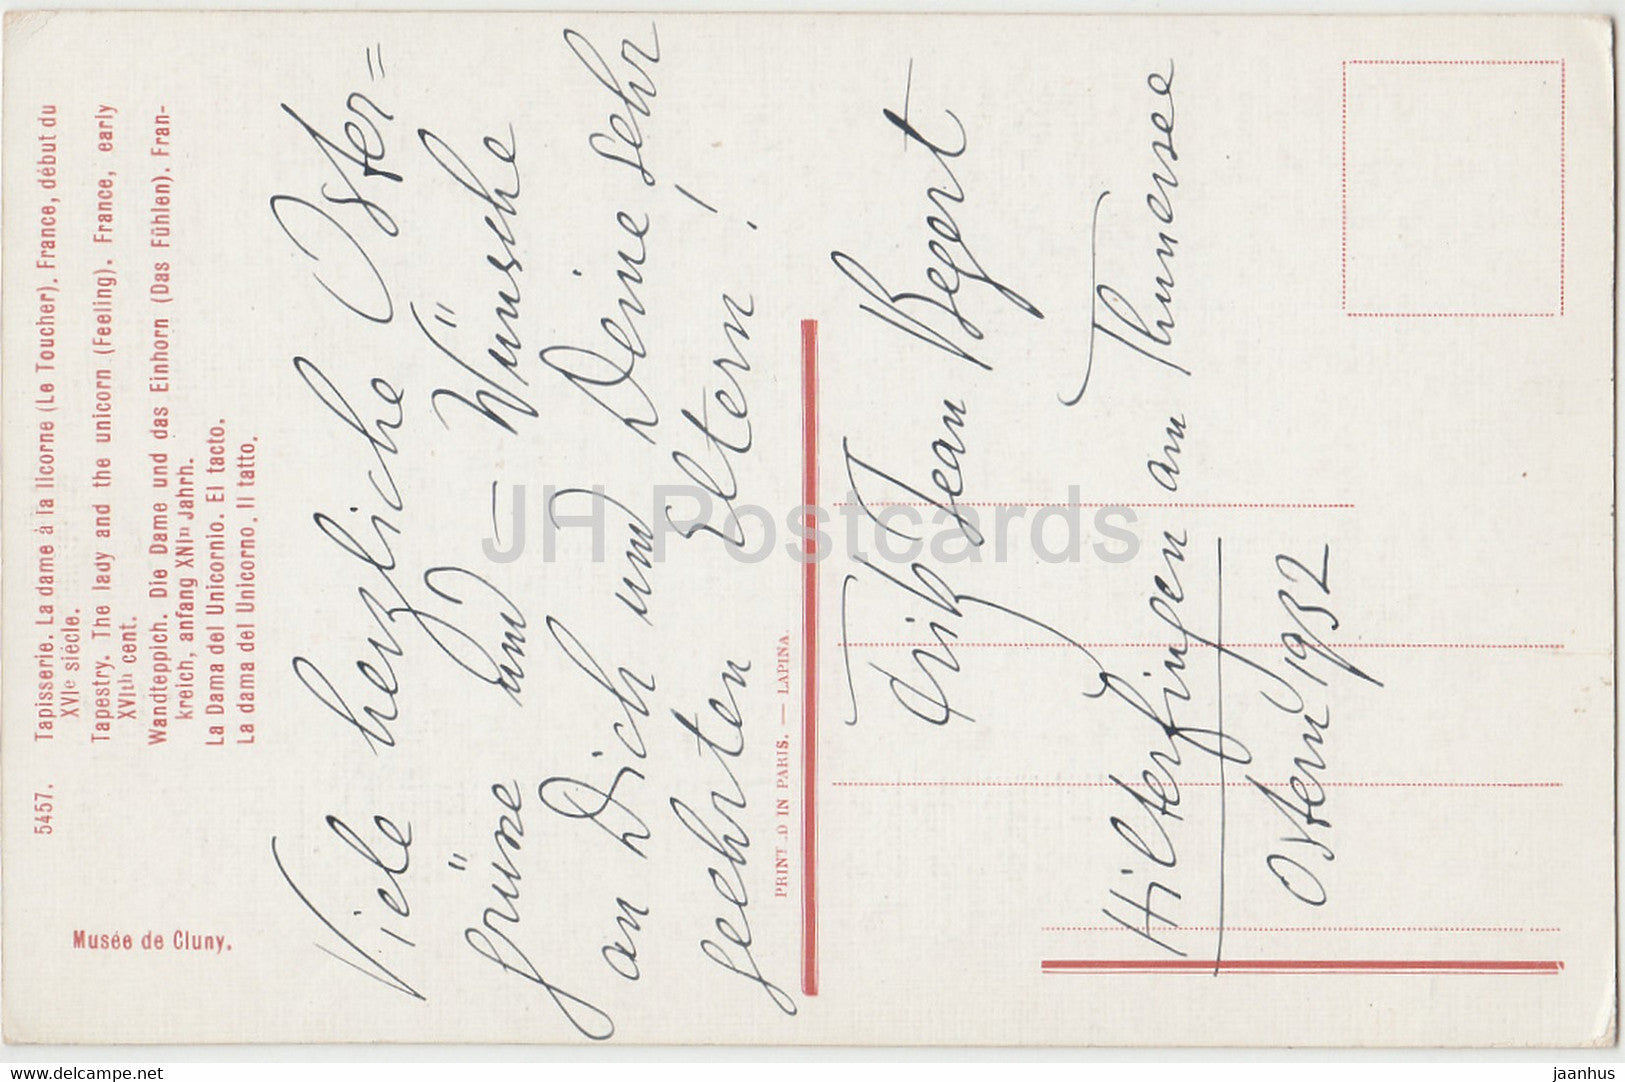 5457. Tapisserie. La dame à la licorne (Le Toucher). France, début du
XVIe siècle.
Tapestry. The lady and the unicorn (Feeling). France, early
XVIth cent.
Wandteppich. Die Dame und das Einhorn (Das Fühlen). Fran-
kreich, anfang XNIn Jahrh.
La Dama del Unicornio. El tacto.
La dama del Unicorno. Il tatto.
Musée de Cluny.
Viele herzliche Oster=
grüsse und – Wünsche
an Dich und Deine sehr
geehrten Eltern!
PRINTED IN PARIS. — LAPINA.
Fritz Jean Begert
Hilterfingen am Thunersee
Ostern 1932
JH Postcards
www.delcampe.net
jaanhus